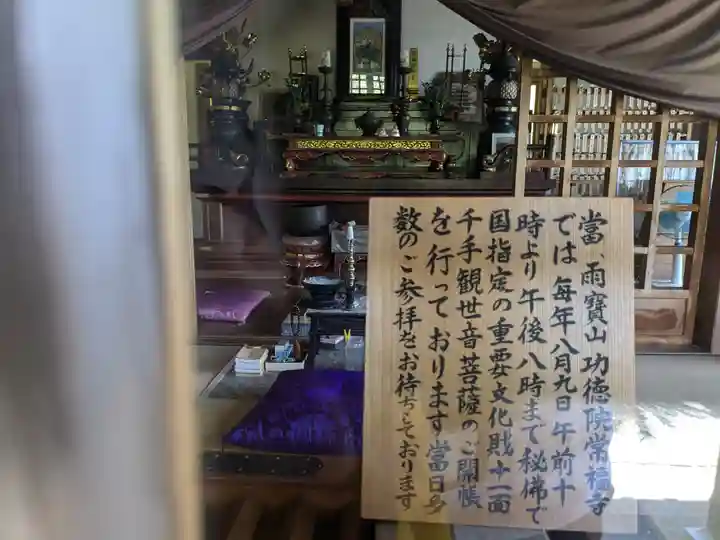 當、雨寶山功德院常福寺
では毎年八月九日午前十
時より午後八時まで秘佛で
国指定の重要文化財十一面
千手観世音菩薩のご開帳
を行っております當日多
数のご参拝をお待ちしております